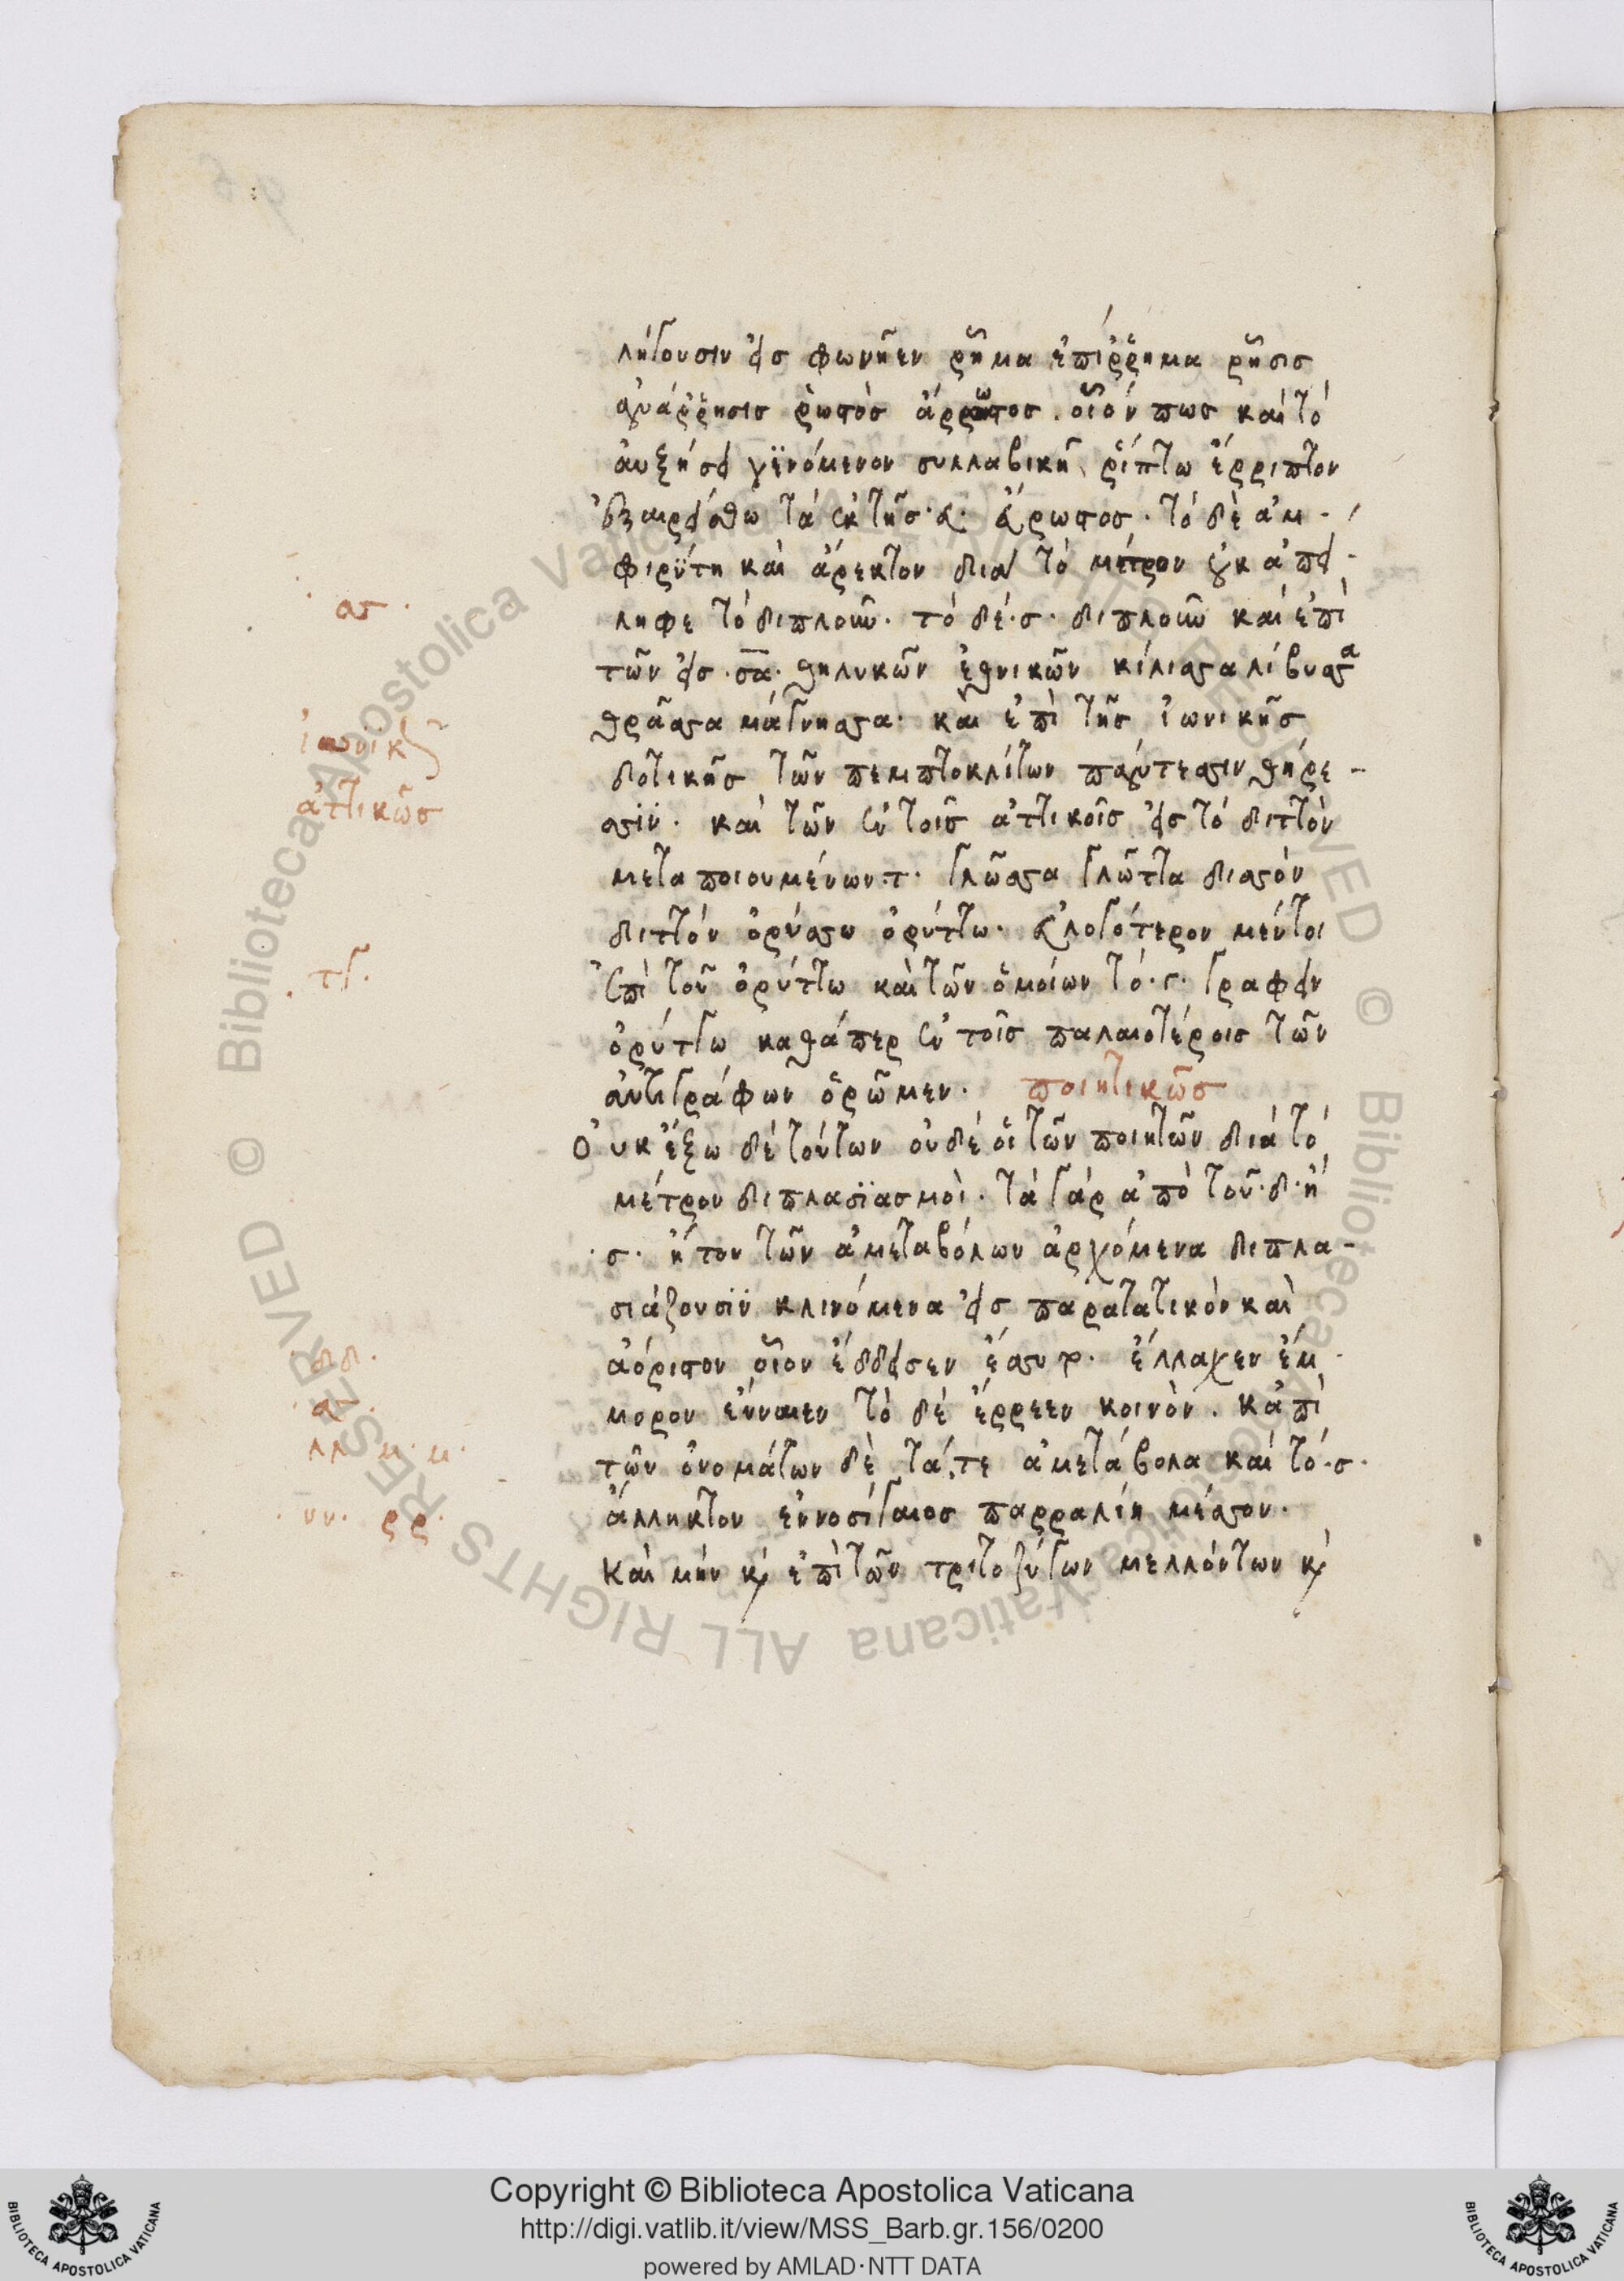 λήγουσιν εἰς φωνῆεν ῥῆμα ἐπίῤῥημα ῥῆσις
ἀνάῤῥησις ῥωστὸς ἄρρωστος. οἷόν πως καὶ τὸ
αὐξήσει γϊνόμενον συλλαβικῆ, ῥίπτω ἔρριπτον
ἐξαιρείσθω τὰ ἐκ τῆς .α. ἄρωστος. τὸ δὲ ἀμ-
φιρύτη καὶ ἄρεκτον διὰ τὸ μέτρον οὐκ ἀπεί-
ληφε τὸ διπλοῦν. τὸ δέ .σ. διπλοῦν καὶ ἐπὶ
τῶν εἰς .σα. θηλυκῶν ἐθνικῶν κίλισσα λίβυσσα
θρᾶσσα μάγνησσα. καὶ ἐπὶ τῆς ἰωνικῆς
δοτικῆς τῶν πεμπτοκλίτων πάντεσσιν θήρε-
σσιν. καὶ τῶν ἐν τοῖς ἀττικοῖς εἰς τὸ διττὸν
μεταποιουμένων .τ. γλῶσσα γλῶττα δισσὸν
διττόν ὀρύσσω ὀρύττω. εὐλογότερον μέντοι
ἐπὶ τοῦ ὀρύττω καὶ τῶν ὁμοίων τὸ .γ. γράφειν
ὀρύτγω καθάπερ ἐν τοῖς παλαιοτέροις τῶν
ἀντιγράφων ὁρῶμεν. ποιητικῶς
Οὐκ ἔξω δὲ τούτων οὐδέ οἱ τῶν ποιητῶν διὰ τὸ
μέτρον διπλασϊασμοὶ. τὰ γὰρ ἀπὸ τοῦ .δ. ἢ
.σ. ἤ του τῶν ἀμεταβόλων ἀρχόμενα διπλα-
σιάζουσϊν κλινόμενα εἰς παρατατικὸν καὶ
ἀόριστον οἷον ἔδδεισεν ἔσσυτο. ἔλλαχεν ἔμ
μορον ἔνναιεν τὸ δὲ ἔρρεεν κοινὸν. κἀπὶ
τῶν ὀνομάτων δὲ τά τε ἀμετάβολα καὶ τό .σ.
ἄλληκτον ἐννοσίγαιος παρραλίη μέσσον.
καὶ μὴν καὶ ἐπὶ τῶν τριτοζύγων μελλόντων καὶ
σσ.
ἰωνικῆς
ἀττικῶς
τγ.
δδ.
σσ.
λλ μ. μ.
νν. ρρ.
Copyright © Biblioteca Apostolica Vaticana
http://digi.vatlib.it/view/MSS_Barb.gr.156/0200
powered by AMLAD·NTT DATA
BIBLIOTECA APOSTOLICA VATICANA
BIBLIOTECA APOSTOLICA VATICANA
© Biblioteca Apostolica Vaticana ALL RIGHTS RESERVED © Biblioteca Apostolica Vaticana ALL RIGHTS RESERVED